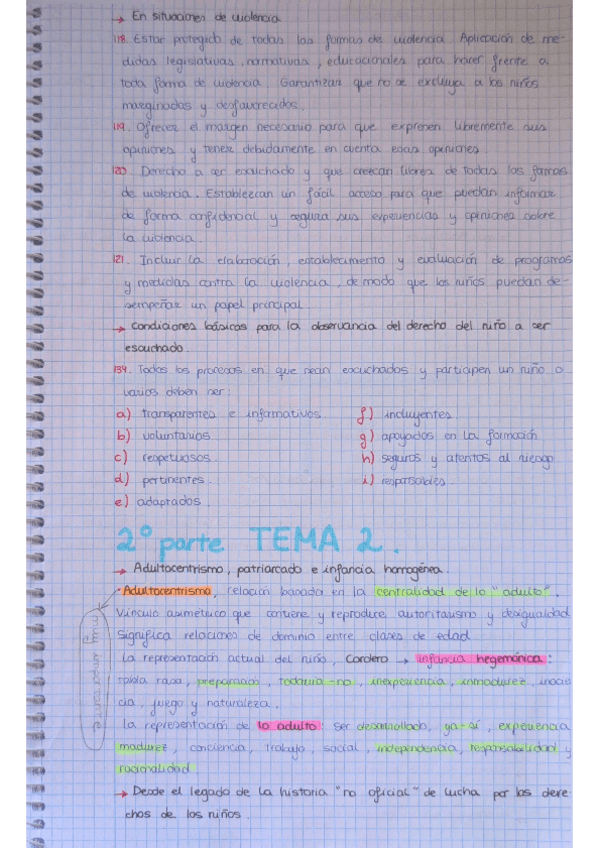 → En situaciones de violencia
118. Estar protegido de todas las formas de violencia. Aplicación de me-
didas legislativas, normativas, educacionales para hacer frente a
toda forma de violencia. Garantizar que no se excluya a los niños
marginados y desfavorecidos.
119. Ofrecer el margen necesario para que expresen libremente sus
opiniones y tener debidamente en cuenta esas opiniones
120. Derecho a ser escuchado y que crezcan libres de todas las formas
de violencia. Establezcan un fácil acceso para que puedan informar
de forma confidencial y segura sus experiencias y opiniones sobre
la violencia.
121. Incluir la elaboración, establecimiento y evaluación de programas
y medidas contra la violencia, de modo que los niños puedan de-
sempeñar un papel principal.
→ Condiciones básicas para la observancia del derecho del niño a ser
escuchado.
134. Todos los procesos en que sean escuchados y participen un niño o
varios deben ser:
a) transparentes e informativos
b) voluntarios
c) respetuosos
d) pertinentes
e) adaptados
f) incluyentes
g) apoyados en la formación
h) seguros y atentos al riesgo
i) responsables
2º parte TEMA 2.
→ Adultocentrismo, patriarcado e infancia homogénea.
· Adultocentrismo, relación basada en la centralidad de lo "adulto".
Vínculo asimétrico que contiene y reproduce autoritarismo y desigualdad
Significa relaciones de dominio entre clases de edad.
muy importante
La representación actual del niño, Cordero → infancia hegemónica:
tabla rasa, preparación, todavía-no, inexperiencia, inmadurez, inocen
cia, juego y naturaleza.
La representación de lo adulto: ser desarrollado, ya-sí, experiencia
madurez, conciencia, trabajo, social, independencia, responsabilidad y
racionalidad.
→ Desde el legado de la historia "no oficial" de lucha por los dere-
chos de los niños.